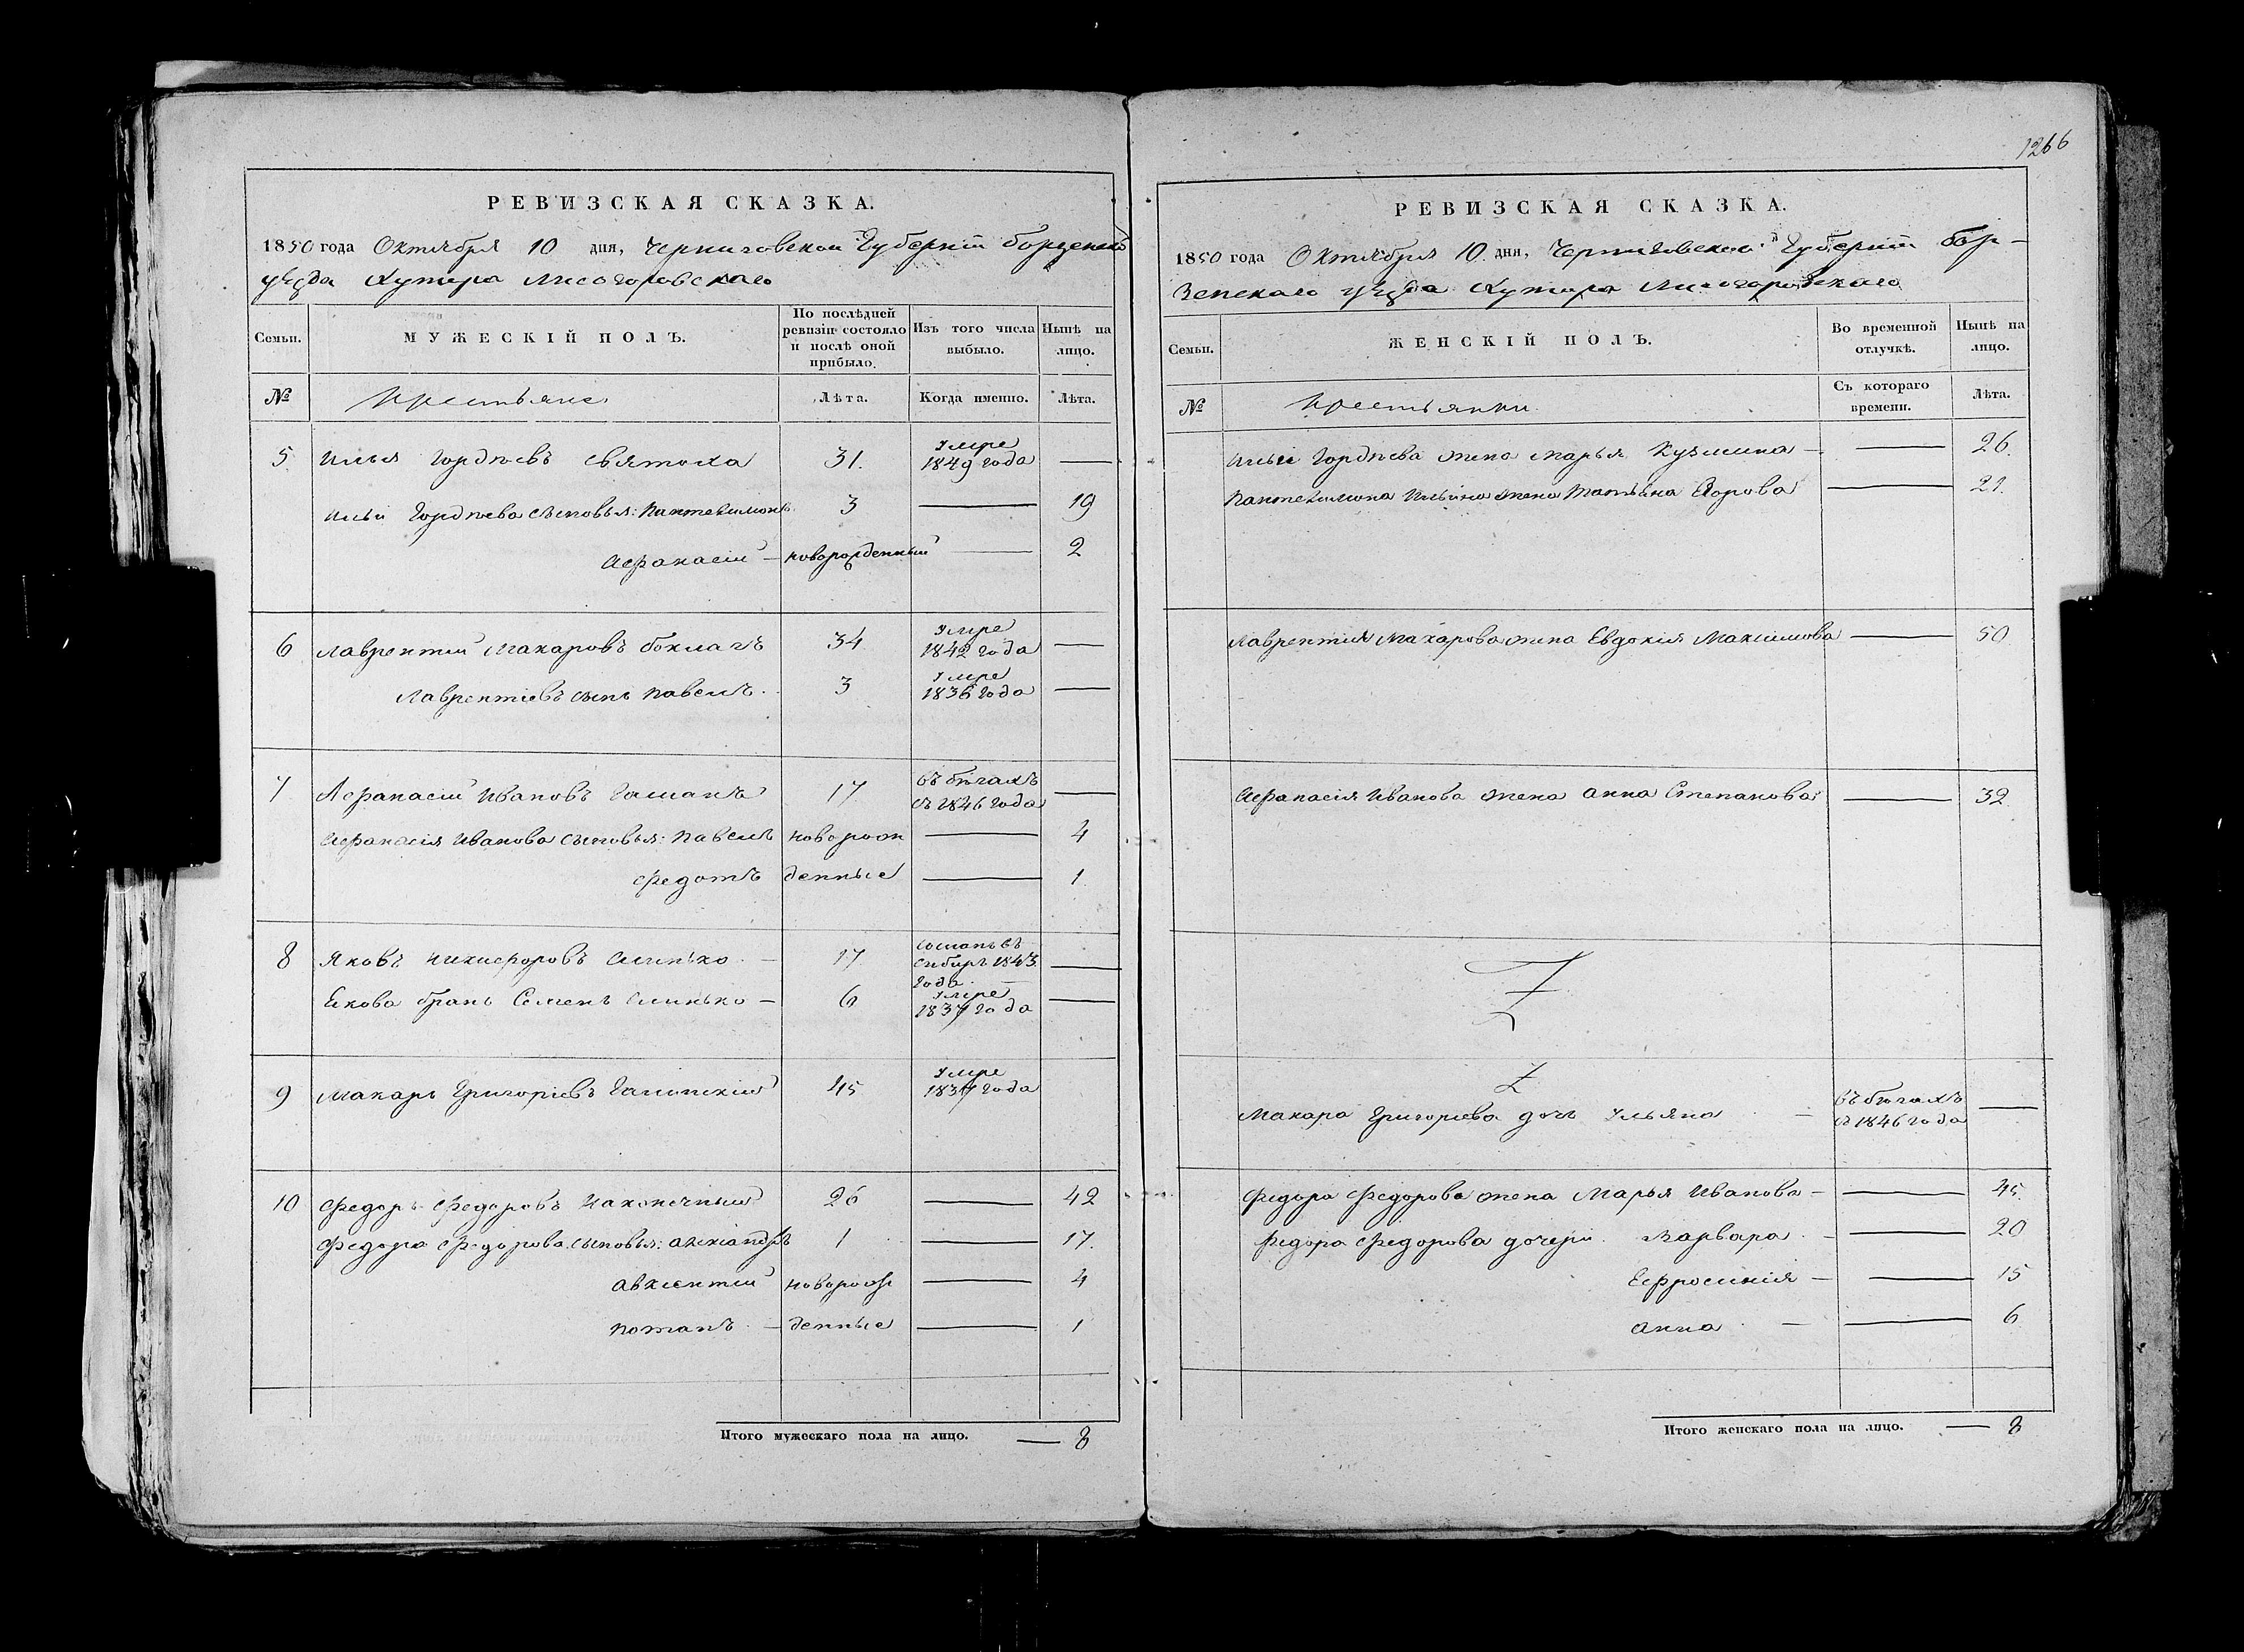 РЕВИЗСКАЯ СКАЗКА.
1850 года Октября 10 дня, Черниговской Губернiи борзенскаго
уѣзда Хутора Лисогоровскаго
Семьи.
МУЖЕСКІЙ ПОЛЪ.
По послѣдней ревизіи состояло и послѣ оной прибыло.
Изъ того числа выбыло.
Нынѣ на лицо.
№
Крестьяне
Лѣта.
Когда именно.
Лѣта.
5 Илья Гордѣевъ Святоха 31. Умре 1849 года —
Ильи Гордѣева сыновья: Пантелимонъ 3 — 19
Афанасій — новорожденный — 2
6 Лаврентій Макаровъ боклагъ 34 Умре 1842 года —
Лаврентіевъ сынъ Павелъ. 3 Умре 1836 года —
7 Афанасій Ивановъ 17 въ бѣгахъ съ 1846 года —
Афанасія Иванова сыновья: Павелъ новорож — 4
Федотъ денные — 1
8 Яковъ Никифоровъ Слинько — 17 сосланъ въ сибирь 1843 года —
Екова братъ Семенъ Слинько — 6 Умре 1837 года —
9 Макаръ Григоріевъ 45 Умре 1837 года
10 Федоръ Федоровъ Наконечный 26 — 42
Федора Федорова сыновья: Александръ 1 — 17.
Авксентій новорож — 4
Потапъ — денные — 1
Итого мужескаго пола на лицо. — 8
1266
РЕВИЗСКАЯ СКАЗКА.
1850 года Октября 10 дня, Черниговской Губерніи бор-
зенскаго уѣзда Хутора Лисогоровскаго
Семьи.
ЖЕНСКІЙ ПОЛЪ.
Во временной отлучкѣ.
Нынѣ на лицо.
№
Крестьянки
Съ котораго времени.
Лѣта.
Ильи Гордѣева жена Марья Кузмина — — 26.
Пантелимона Ильина жена Татьяна Егорова — 21.
Лаврентія Макарова жена Евдокія Максимова — 50
Афанасія Иванова жена Анна Степанова — 32
Макара Григорьева дочь Ульяна — въ бѣгахъ съ 1846 года —
Федора Федорова жена Марья Иванова — — 45.
Федора Федорова дочери Варвара — — 20
Ефросинія — — 15
Анна — — 6
Итого женскаго пола на лицо. — 8